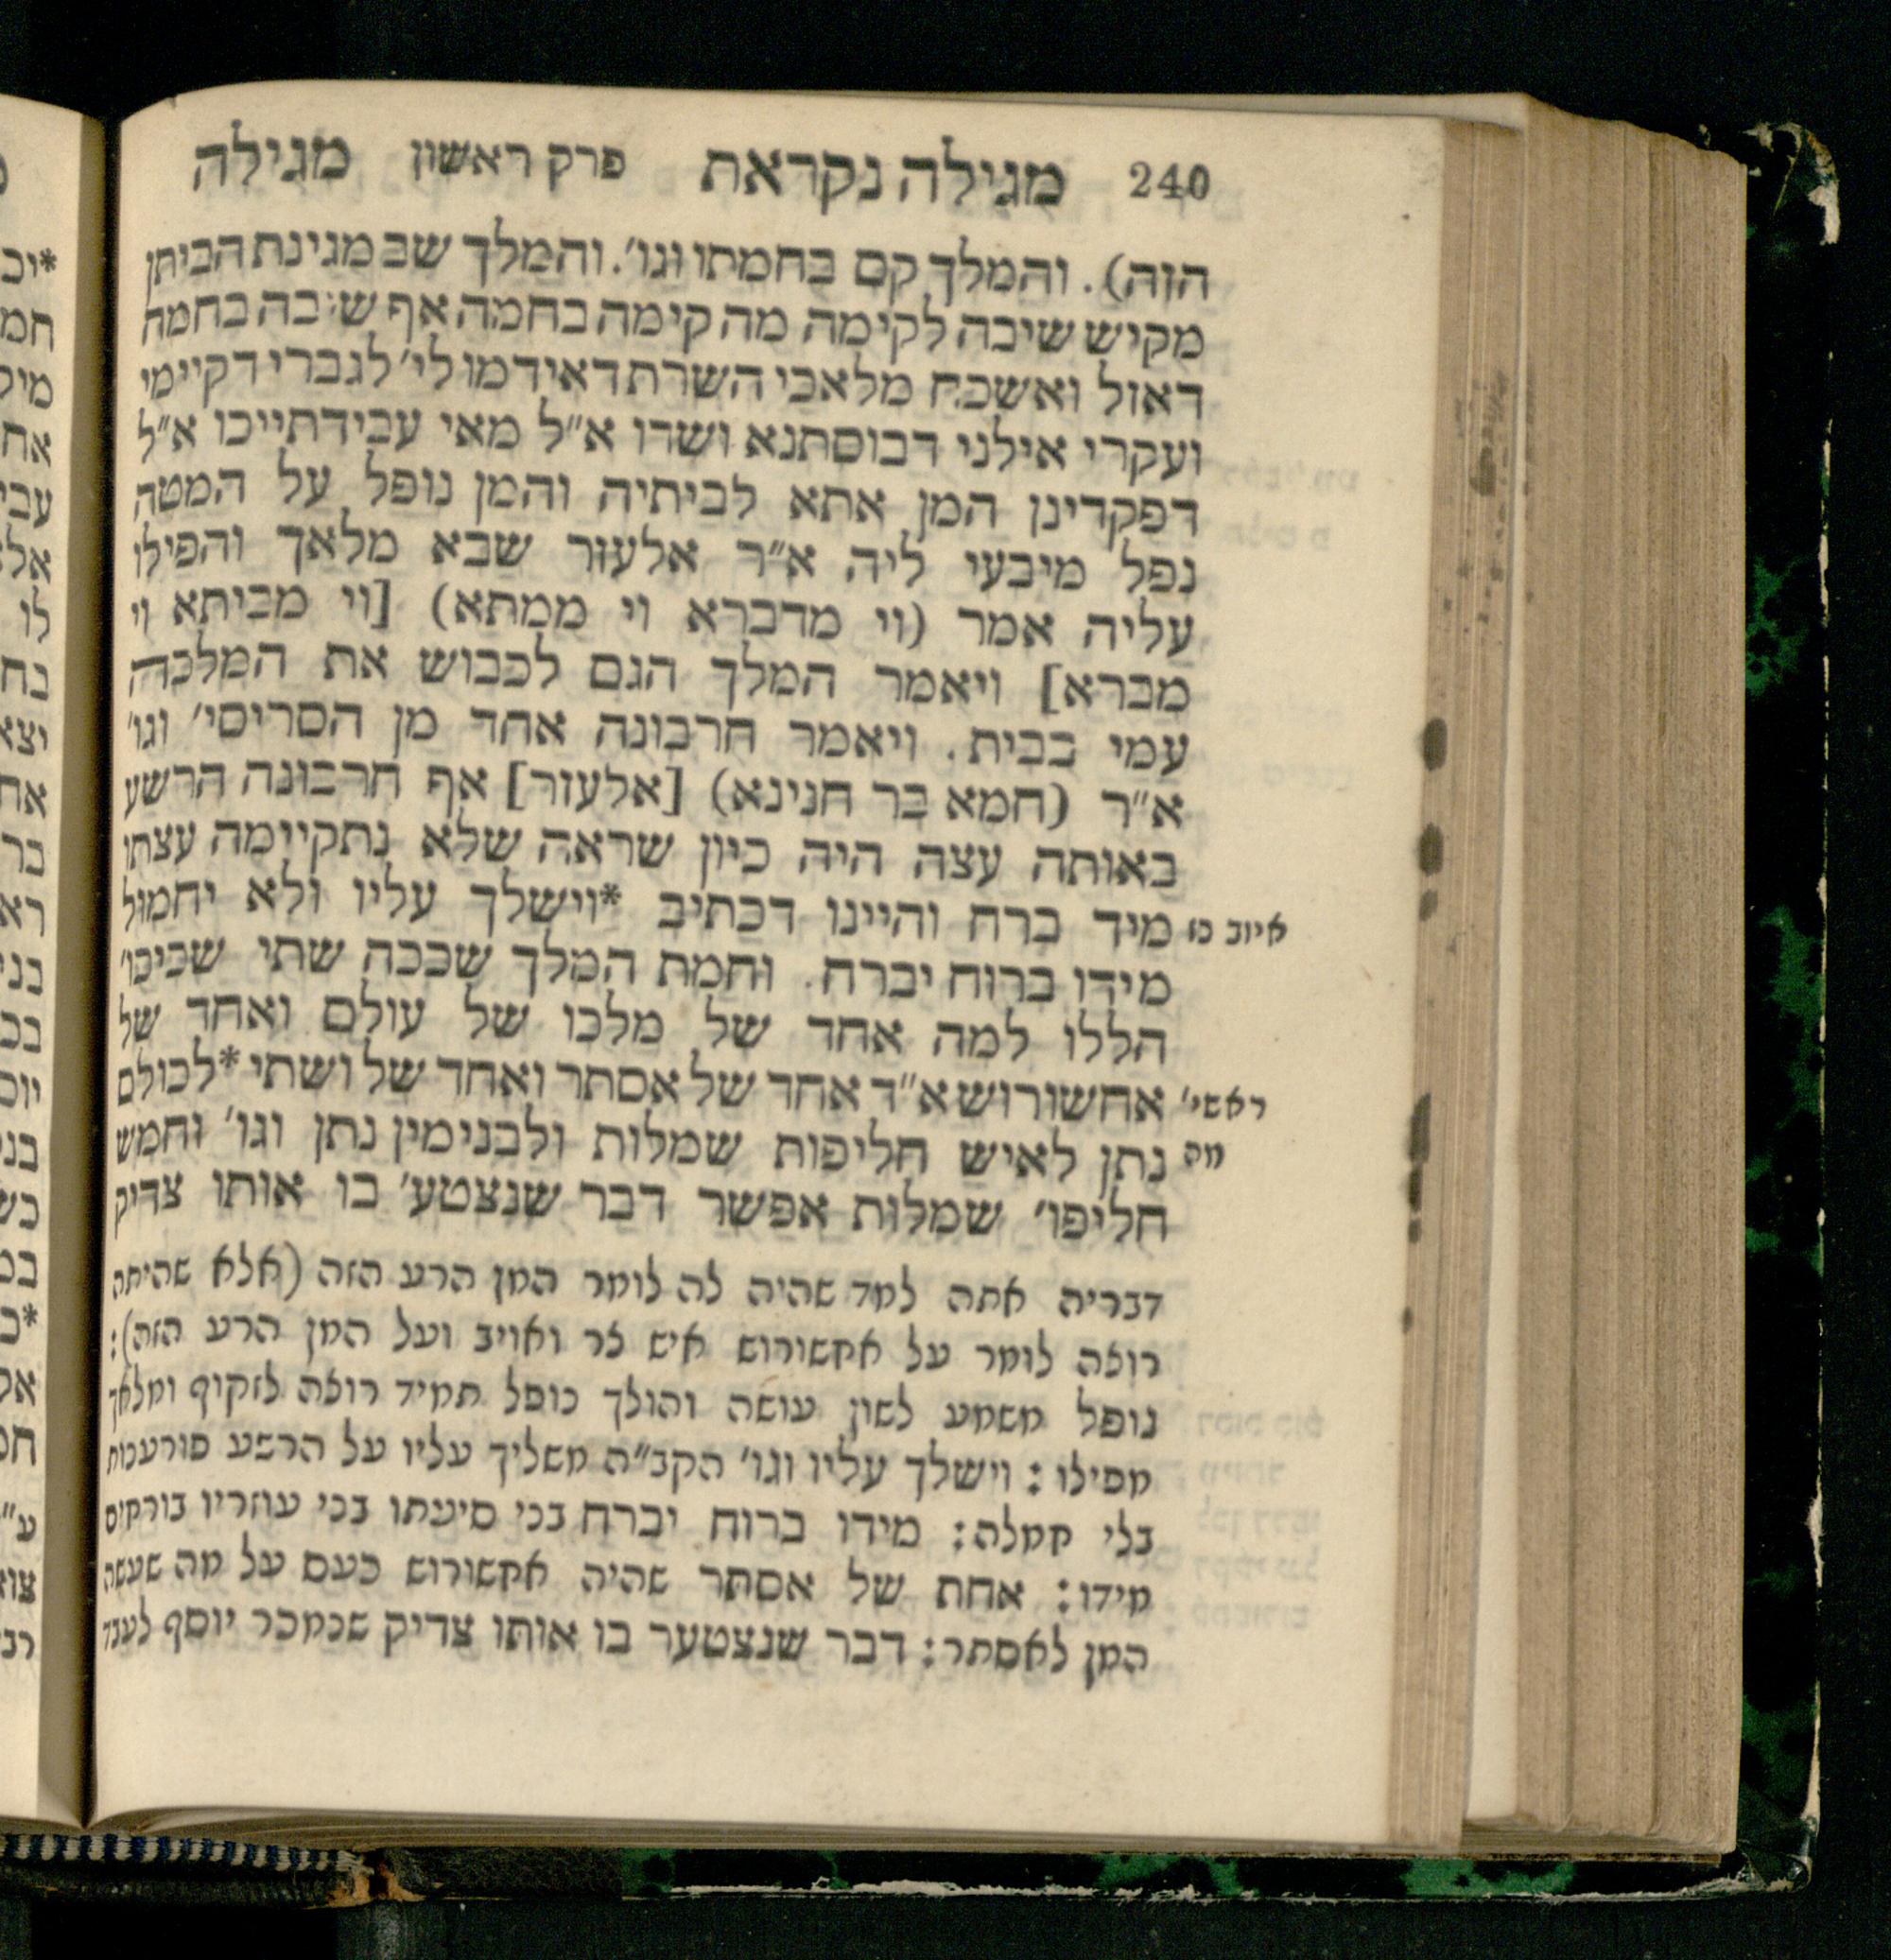 240 מגילה נקראת פרק ראשון מגילה
הזה). והמלך קם בחמתו וגו'. והמלך שב מגינת הביתן
מקיש שיבה לקימה מה קימה בחמה אף שיבה בחמה
דאזל ואשכח מלאכי השרת דאידמו לי' לגברי דקיימי
ועקרי אילני דבוסתנא ושדו א"ל מאי עבידתייכו א"ל
דפקדינן המן אתא לביתיה והמן נופל על המטה
נפל מיבעי ליה א"ר אלעזר שבא מלאך והפילו
עליה אמר (וי מדברא וי ממתא) [וי מביתא וי
מברא] ויאמר המלך הגם לכבוש את המלכה
עמי בבית. ויאמר חרבונה אחד מן הסריסי' וגו'
א"ר (חמא בר חנינא) [אלעזר] אף חרבונה הרשע
באותה עצה היה כיון שראה שלא נתקיימה עצתו
איוב כז מיד ברח והיינו דכתיב *וישלך עליו ולא יחמול
מידו ברוח יברח. וחמת המלך שככה שתי שכיכו'
הללו למה אחד של מלכו של עולם ואחד של
ראשי' אחשורוש א"ד אחד של אסתר ואחד של ושתי *לכולם
מה נתן לאיש חליפות שמלות ולבנימין נתן וגו' וחמש
חליפו' שמלות אפשר דבר שנצטע' בו אותו צדיק
דבריה אתה למד שהיה לה לומר המן הרע הזה (אלא שהיתה
רוצה לומר על אחשורוש איש צר ואויב ועל המן הרע הזה):
נופל משמע לשון עושה והולך נופל תמיד רוצה לזקוף ומלאך
מפילו: וישלך עליו וגו' הקב"ה משליך עליו על הרשע פורענות
בלי חמלה: מידו ברוח יברח בני סיעתו בני עוזריו בורחים
מידו: אחת של אסתר שהיה אחשורוש כעס על מה שעשה
המן לאסתר: דבר שנצטער בו אותו צדיק שנמכר יוסף לעבד